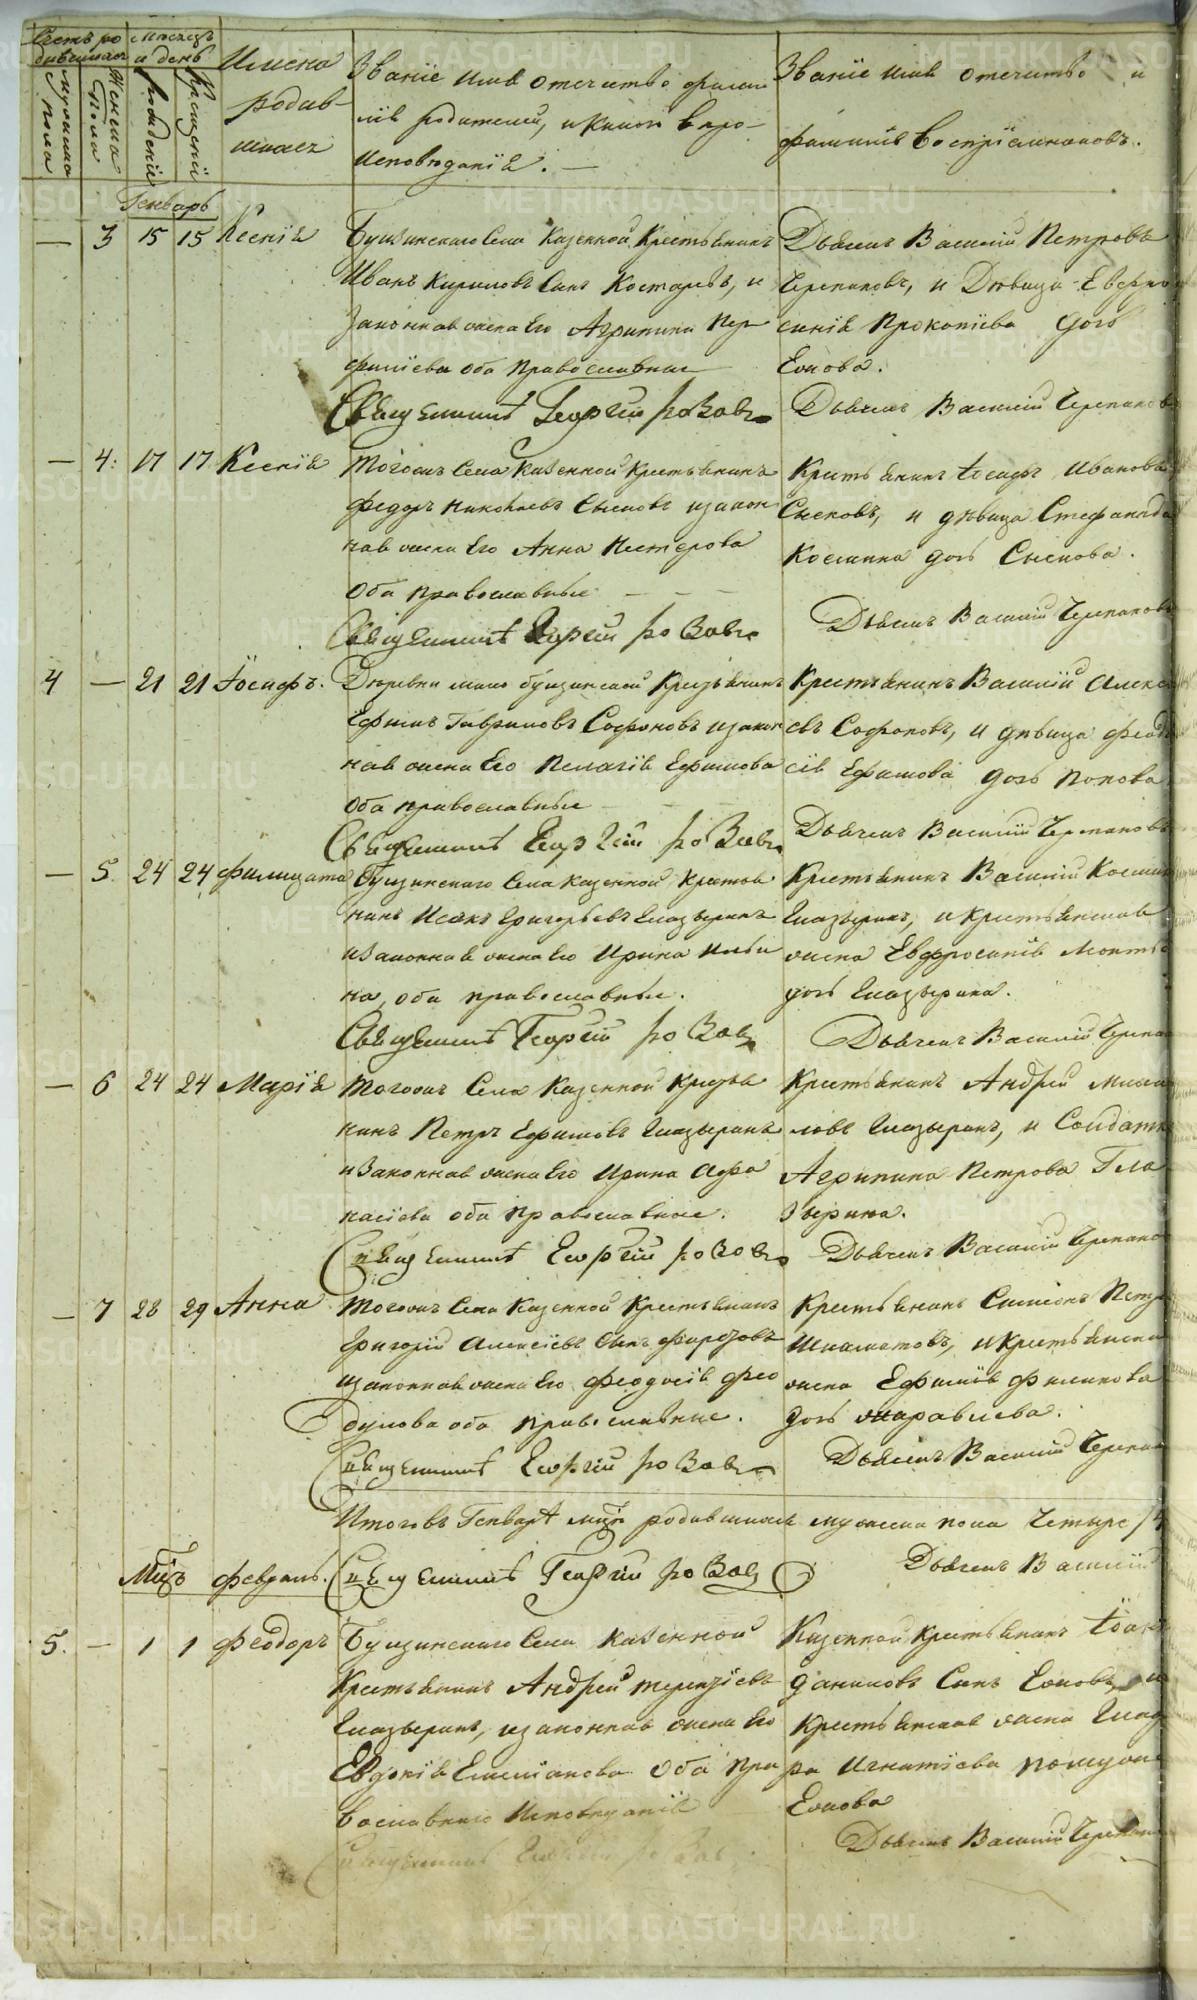 Счетъ ро
дившихся
Мѣсяцъ
и день
мужеска
пола
Женска
пола
рожденія
Крещенія
Имена
родив-
шихся
Званіе имя отечество фами
лія родителей, и какого веро-
исповѣданія.
Званіе имя отечество и
фамилія воспріемниковъ.
Генварь
— 3 15 15 Ксенія
Бушзинскаго Села Казенной Крестьянинъ
Иванъ Кириловъ Сынъ Костаревъ, и
Законная жена Его Агрипина Пер
филіева оба Православные
Священникъ Георгій розовъ
Дьячекъ Василій Петровъ
Черепановъ, и Дѣвица Евфро
синія Прокопіева дочь
Ежова.
Дьячекъ Василій Черепановъ
— 4: 17 17 Ксенія
Тогожъ Села Казенной Крестьянинъ
Федоръ Николаевъ изакон
ная жена Его Анна Нестерова
Оба православные
Священникъ Георгій розовъ
Крестьянинъ Іосифъ Ивановъ
и дѣвица Стефанида
Козмина дочь
Дьячекъ Василій Черепановъ
4 — 21 21 Іосифъ.
Деревни мало бушзинской Крестьянинъ
Ефимъ Гавриловъ Софоновъ изакон
ная жена Его Пелагія Ефимова
Оба православные
Священникъ Георгій розовъ
Крестьянинъ Василій Алексѣ
евъ Софоновъ, и дѣвица феодо
сія Ефимова дочь Попова
Дьячекъ Василій Черепановъ
— 5. 24 24 филицата
Бушзинскаго Села Казенной Крестья
нинъ Исакъ Григорьевъ Глазыринъ
изаконная жена Его Ирина Ильи
на, оба православные.
Священникъ Георгій розовъ
Крестьянинъ Василій Козмин
Глазыринъ, и Крестьянская
жена Евфросинія
дочь Глазырина.
Дьячекъ Василій Черепан
— 6 24 24 Марія
Тогожъ Села Казенной Крестья
нинъ Петръ Ефимовъ Глазыринъ
изаконная жена Его Ирина Афа
насіева оба Православные.
Священникъ Георгій розовъ
Крестьянинъ Андрей Михай
ловъ Глазыринъ, и Солдатка
Агрипина Петрова Гла
зырина.
Дьячекъ Василій Черепано
— 7 28 29 Анна
Тогожъ Села Казенной Крестьянинъ
Григорій Алексіевъ Сынъ
изаконная жена Его Феодосія фео
дулова оба Православные.
Священникъ Георгій розовъ
Крестьянинъ Симеонъ Петр
и Крестьянская
жена Ефимія филипова
дочь Журавлева.
Дьячекъ Василій Черепан
Итоговъ Генварѣ мцѣ родившихся мужеска пола Четыре /4
Священникъ Георгій розовъ
Дьячекъ Василій
Мцъ февраль.
5. — 1 1 Феодоръ
Бушзинскаго Села казенной
Крестьянинъ Андрей терентіевъ
Глазыринъ, изаконная жена Его
Евдокія Емеліанова Оба Пра
вославнаго Исповеданія
Священникъ Георгій розовъ
Казенной Крестьянинъ Іоанъ
даниловъ Сынъ Ежовъ, и
Крестьянская жена Глафи
ра Игнатіева
Ежова
Дьячекъ Василій Черепано
METRIKI.GASO-URAL.RU